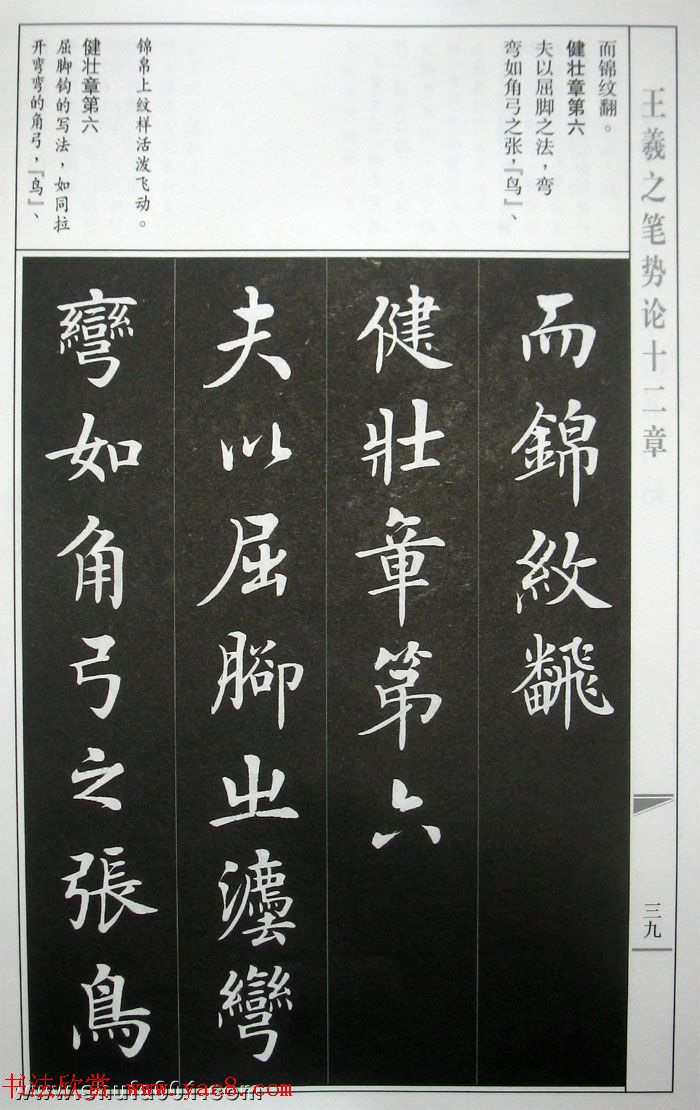 王羲之笔势论十二章
三九
而锦纹翻。
健壮章第六
夫以屈脚之法，弯
弯如角弓之张，『鸟』、
锦帛上纹样活泼飞动。
健壮章第六
屈脚钩的写法，如同拉
开弯弯的角弓，『鸟』、
而錦紋飜
健壯章第六
夫以屈腳之灋彎
彎如角弓之張鳥
书法欣赏 www.yac8.com